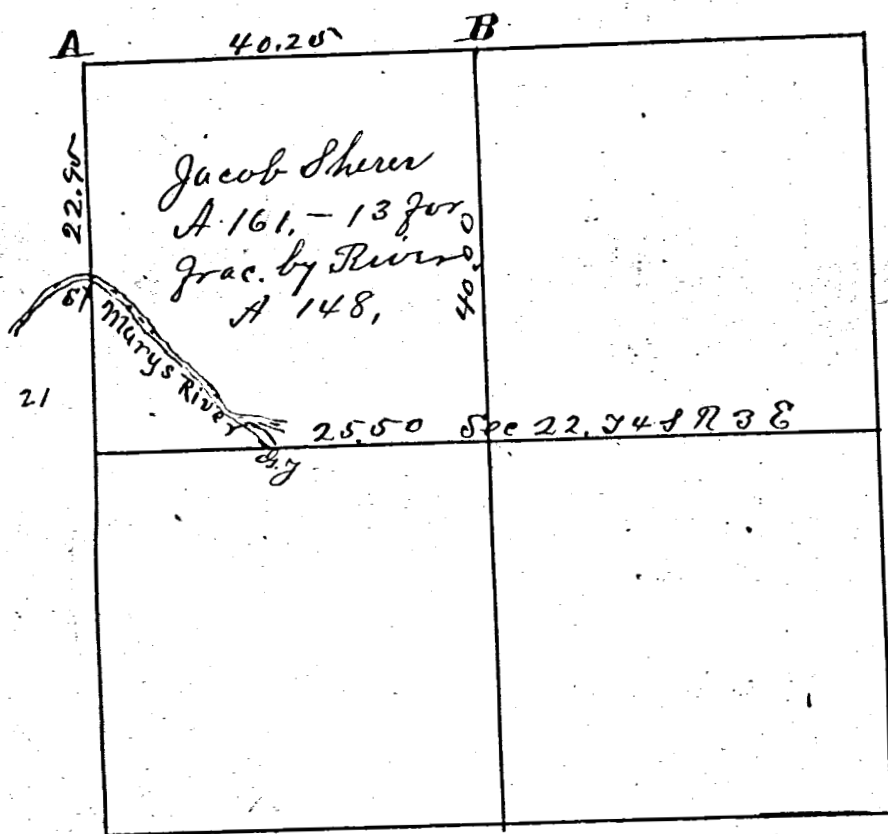 A 40.25 B
22.95
Jacob Sherer
A 161. - 13 for
frac. by River
A 148,
40.00
St Marys River
21
25.50 Sec 22. T 4 S R 3 E